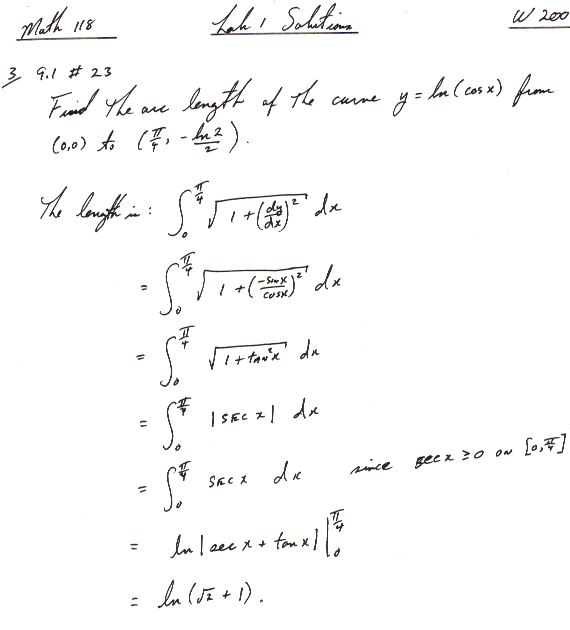 Math 118 Lab 1 Solutions W 200
3 9.1 # 23
Find the arc length of the curve y = ln(cos x) from
(0,0) to (π/4, -ln 2/2).
The length is: ∫_0^{π/4} √(1 + (dy/dx)²) dx
= ∫_0^{π/4} √(1 + (-sin x/cos x)²) dx
= ∫_0^{π/4} √(1 + tan²x) dx
= ∫_0^{π/4} |sec x| dx
= ∫_0^{π/4} sec x dx since sec x ≥ 0 on [0, π/4]
= ln|sec x + tan x| |_0^{π/4}
= ln(√2 + 1).